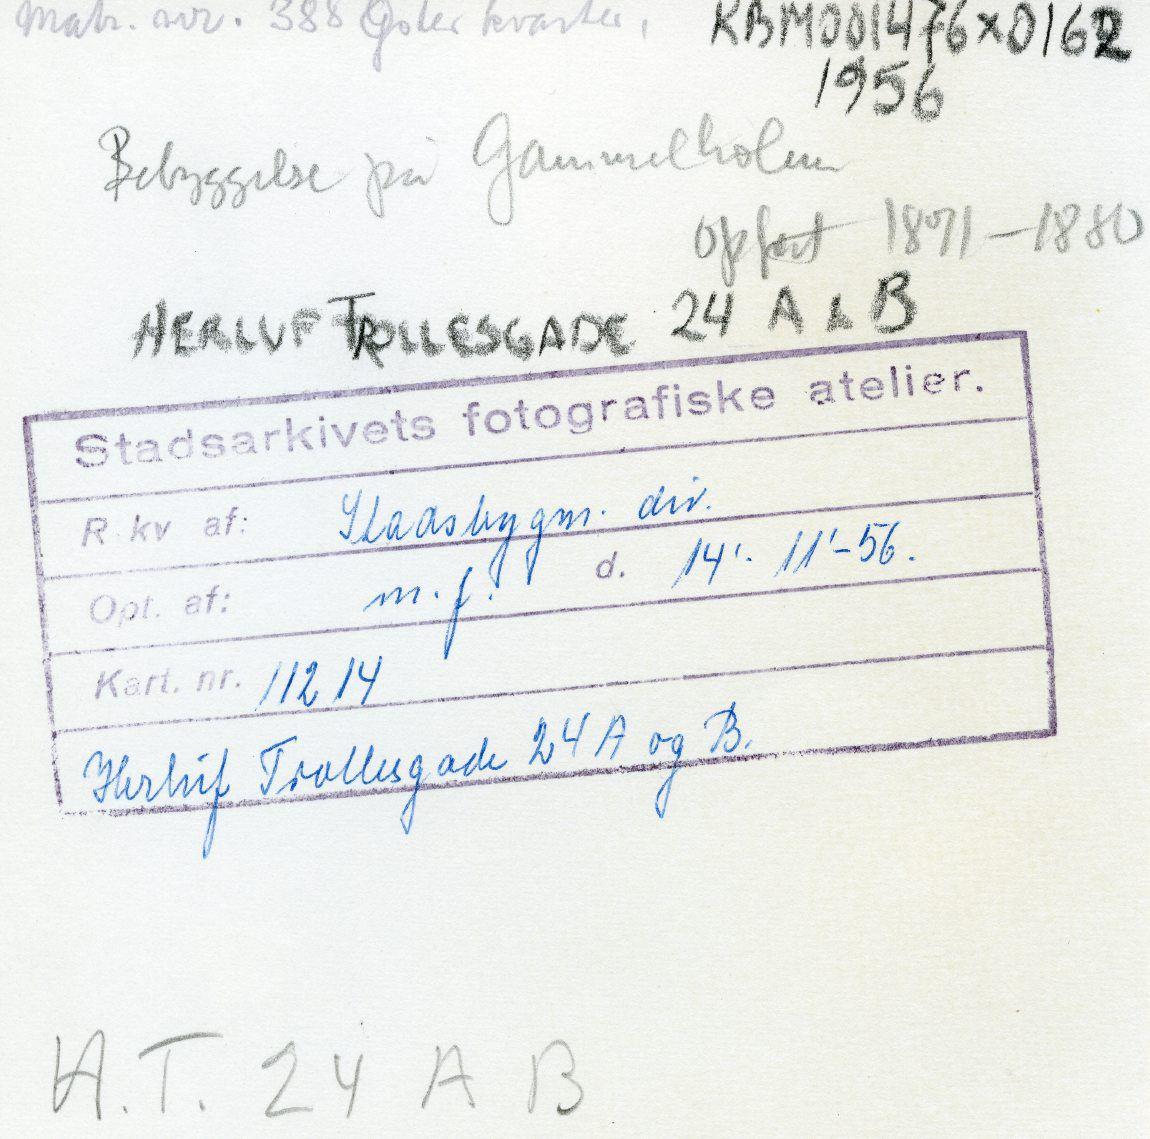 Matr. nr. 388 Øster kvarter,
KBM001476x0162
1956
Bebyggelse på Gammelholm
opført 1871–1880
HERLUF TROLLESGADE 24 A & B
Stadsarkivets fotografiske atelier.
R kv af: Stadsbygm. div.
Opt. af: m.f. d. 14'. 11'-56.
Kart. nr. 11214
Herluf Trollesgade 24 A og B.
H.T. 24 A B